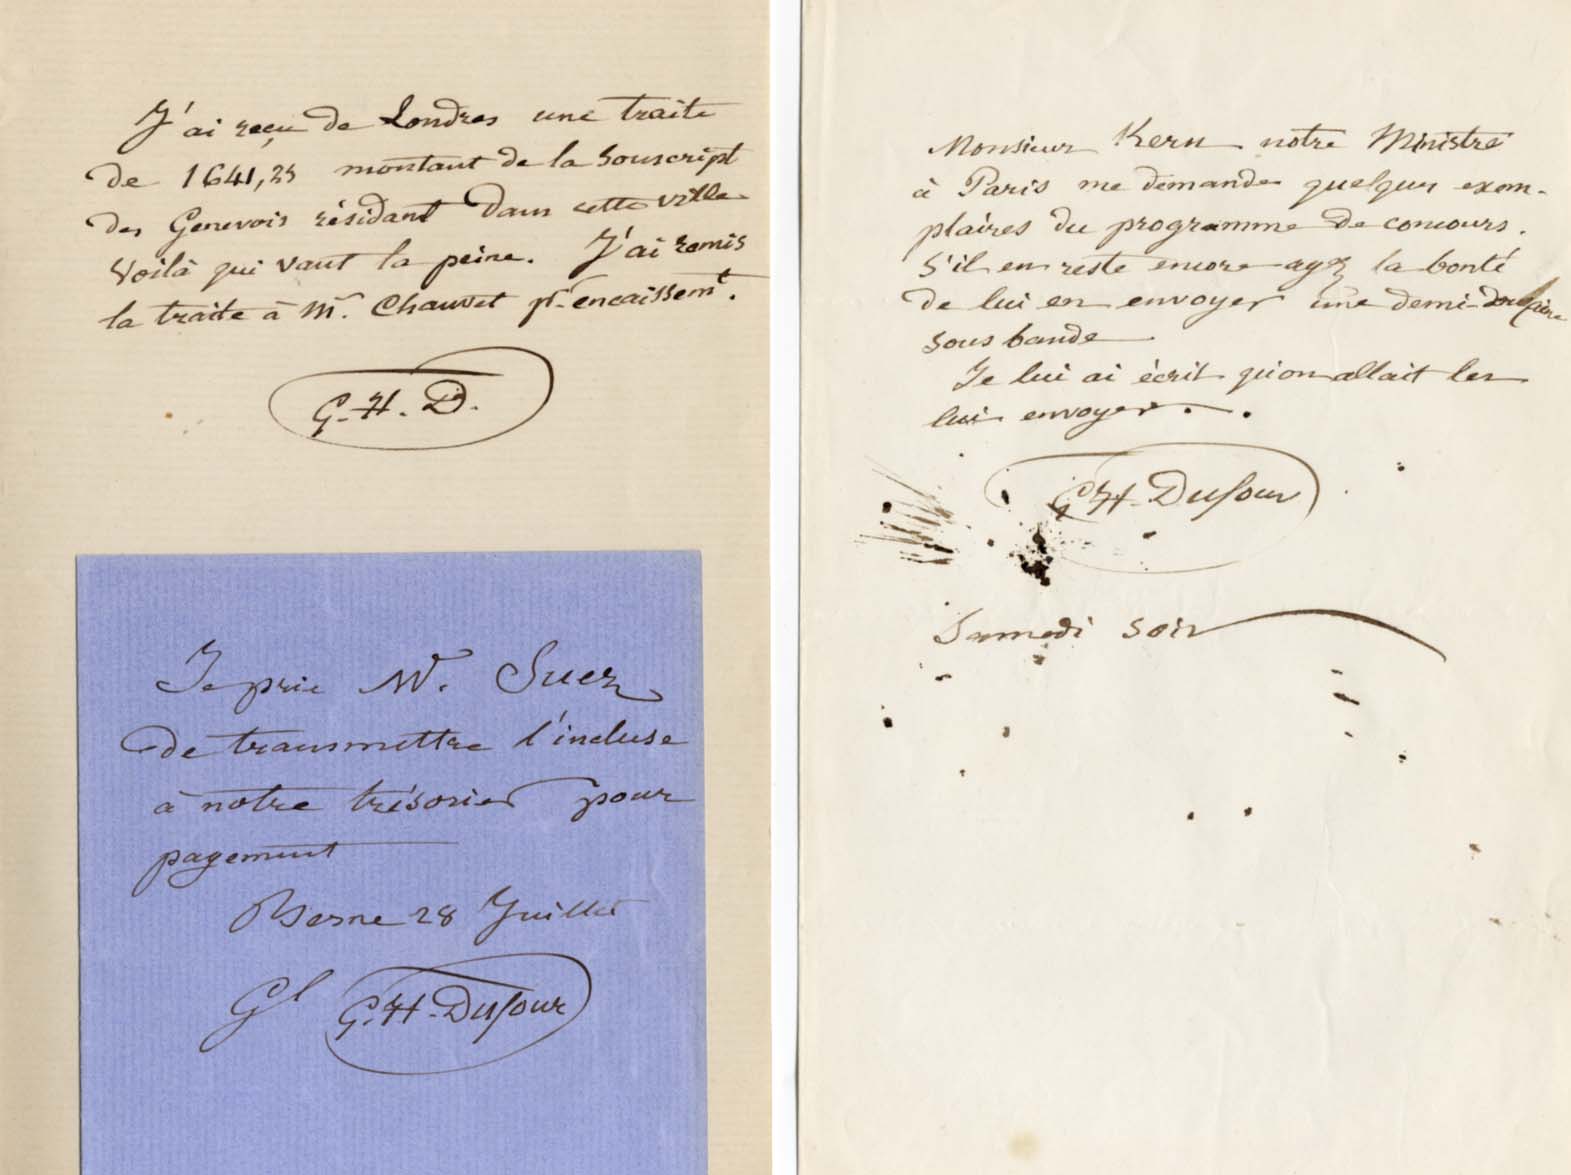 J'ai reçu de Londres une traite
de 1641,25 montant de la souscript
des Genevois résidant dans cette ville
Voilà qui vaut la peine. J'ai remis
la traite à Mr. Chauvet pr. encaissemt.
G.-H. D.
Je prie Mr. Suez
de transmettre l'incluse
à notre trésorier pour
payement
Berne 28 Juillet
Gl G.-H. Dufour
Monsieur Kern notre Ministre
à Paris me demande quelques exem-
plaires du programme de concours.
S'il en reste encore ayez la bonté
de lui en envoyer une demi-douzaine
sous bande
Je lui ai écrit qu'on allait les
lui envoyer.
G.H. Dufour
Samedi soir